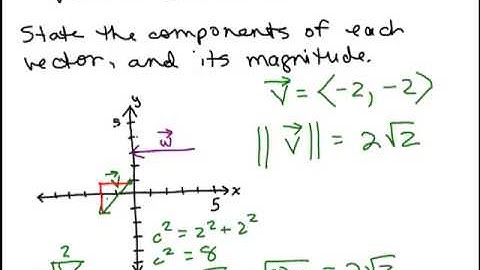 State the components of each
vector, and its magnitude.
v⃗ = ⟨-2, -2⟩
‖ v⃗ ‖ = 2√2
y
5
w⃗
v⃗
x
5
c² = 2² + 2²
c² = 8
2
= 2√2